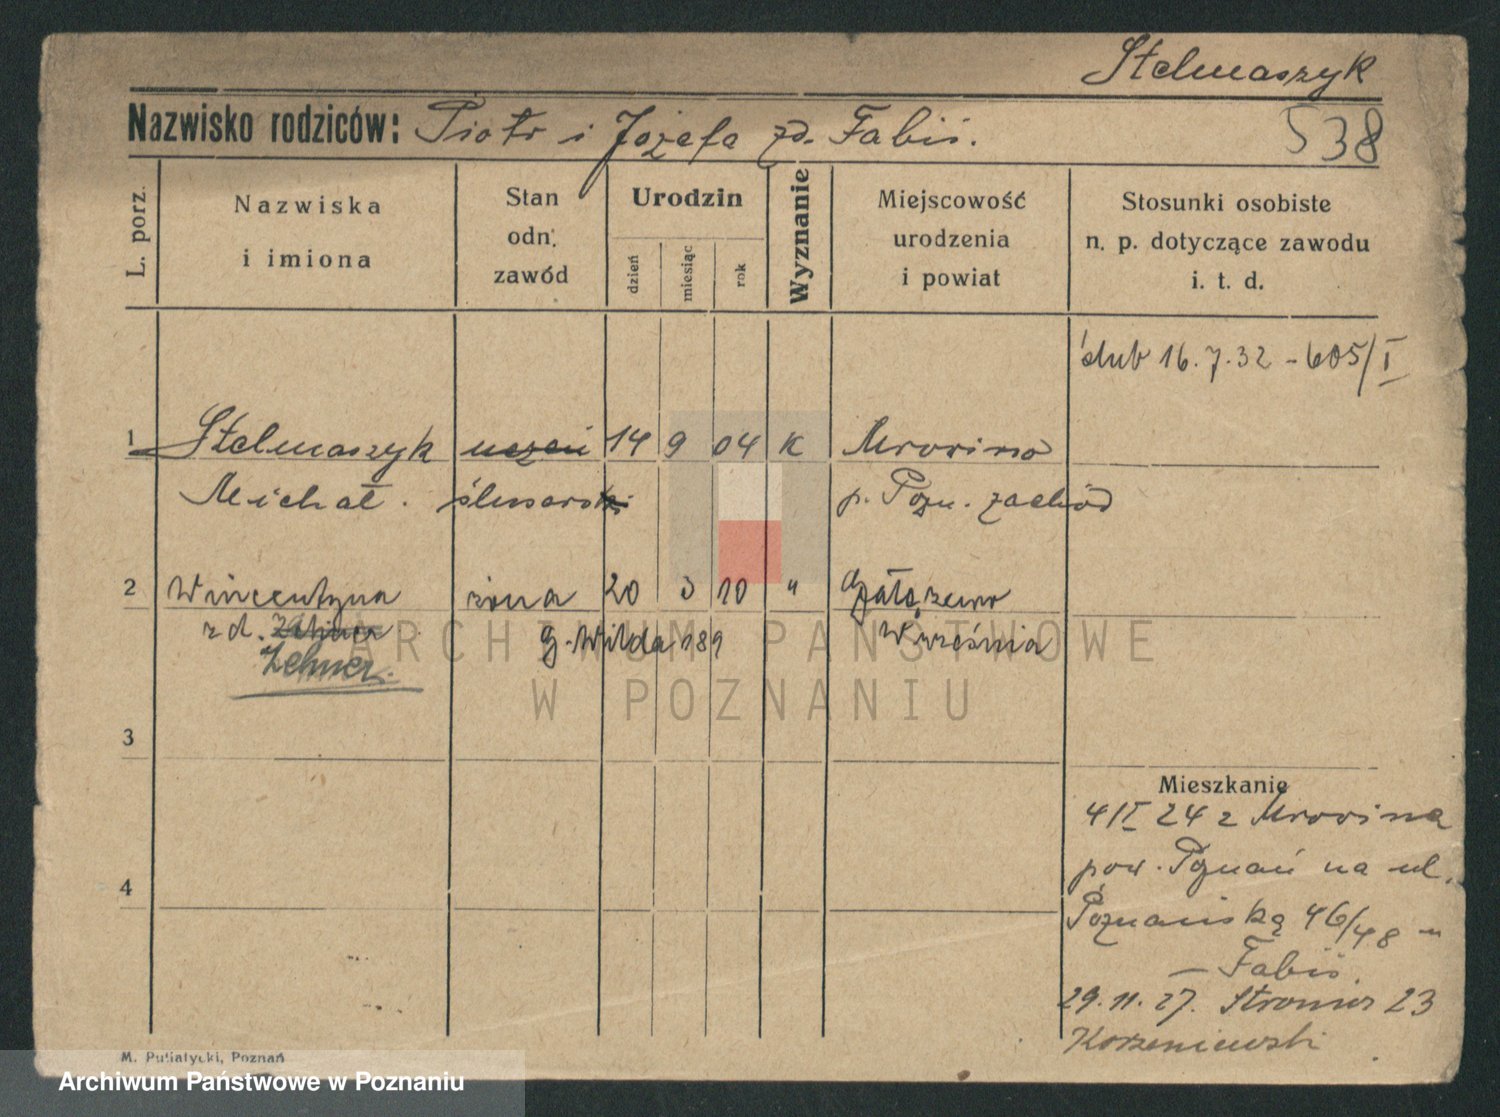 Stelmaszyk
Nazwisko rodziców: Piotr i Józefa zd. Fabiś.
538
L. porz.
Nazwiska
i imiona
Stan
odn.
zawód
Urodzin
dzień
miesiąc
rok
Wyznanie
Miejscowość
urodzenia
i powiat
Stosunki osobiste
n. p. dotyczące zawodu
i. t. d.
ślub 16.7.32 - 605/I
1 Stelmaszyk uczeń 14 9 04 K Mrowino
Michał. ślusarski p. Pozn. zachód
2 Wincentyna żona 20 3 10 " Gałęzewo
zd. g. Wilda 189 Września
Zehner.
ARCHIWUM PAŃSTWOWE
W POZNANIU
3
Mieszkanie
4/I 24 z Mrowina
pow. Poznań na ul.
4
Poznańską 46/48 –
– Fabiś.
29.11.27. 23
Korzeniewski
M. Putiatycki, Poznań
Archiwum Państwowe w Poznaniu